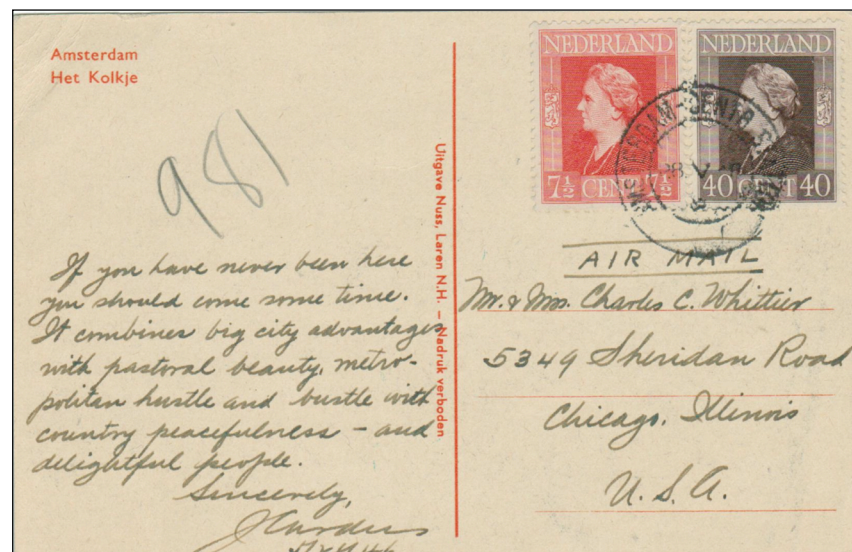 Amsterdam
Het Kolkje
981
If you have never been here
you should come some time.
It combines big city advantages
with pastoral beauty, metro-
politan hustle and bustle with
country peacefulness – and
delightful people.
Sincerely,
Uitgave Nuss, Laren N.H. – Nadruk verboden
NEDERLAND
7½ CENT 7½
NEDERLAND
40 CENT 40
AIR MAIL
Mr. & Mrs. Charles C. Whittier
5349 Sheridan Road
Chicago, Illinois
U.S.A.